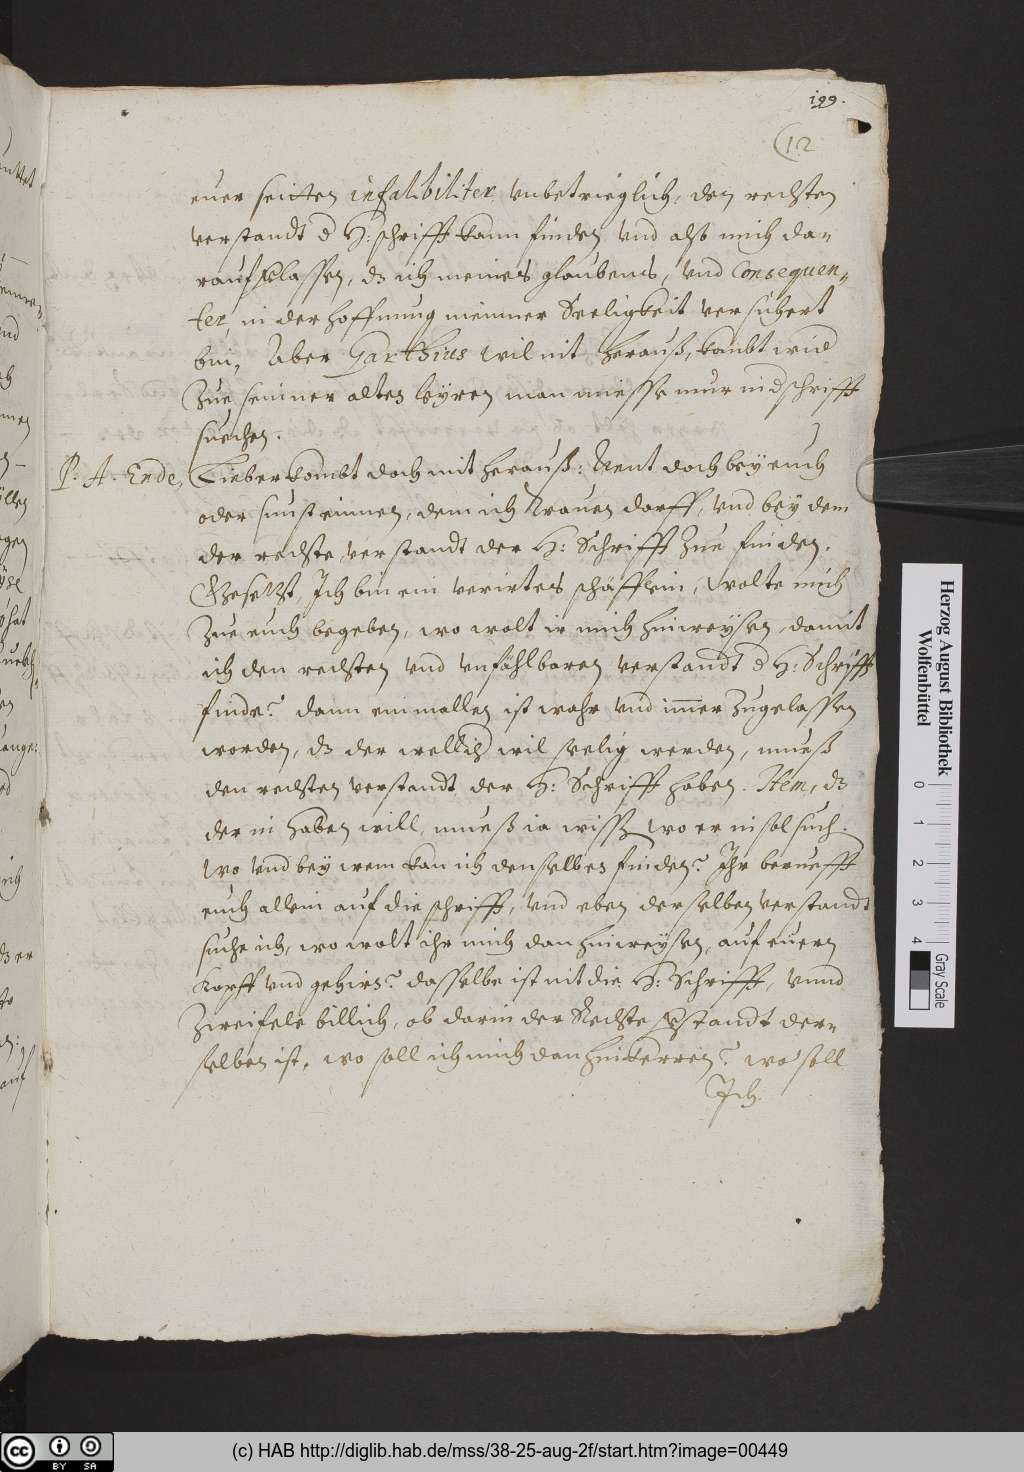 199.
(12
euer seitten infalibiliter, vnbetrieglich, den rechten
verstandt d H: schrifft kann finden, vnd also mich da-
rauf verlassen, dz ich meines glaubens, vnd Consequen-
ter, in der hoffnung meinner Seeligkeit versichert
bin, Aber Garthius wil nit herauß, kombt wid
Zue seinner alten leyren man miesse nur in d schrifft
suechen.
P. A. Ende,
Lieber kombt doch mit herauß: Nent doch bey euch
oder sunst einnen, dem ich trauen darff, vnd bey dem
der rechte verstandt der H: Schrifft Zue finden.
Gesetzt, Ich bin ein verirtes schäfflein, wolte mich
Zue euch begeben, wo wolt ir mich hinweysen, damit
ich den rechten vnd vnfählbaren verstandt d H: Schrifft
finde? dann einmallen ist wahr vnd immer Zugelassen
worden, dz der wellich wil seelig werden, mueß
den rechten verstandt der H: Schrifft haben. Item, dz
der in haben will, mueß ia wissen, wo er in sol such.
Wo vnd bey wem kan ich denselben finden? Ihr beruefft
euch allein auf die schrifft, vnd eben derselben verstandt
suche ich, wo wolt ihr mich dan hinweysen, auf euern
Kopff vnd gehirn? dasselbe ist nit die H: Schrifft, vnnd
Zweifele billich, ob darin der Rechte verstandt der-
selben ist, wo soll ich mich dan hinkerren? wo soll
Ich.
Herzog August Bibliothek
Wolfenbüttel
0 1 2 3 4
Gray Scale
cc BY SA
(c) HAB http://diglib.hab.de/mss/38-25-aug-2f/start.htm?image=00449